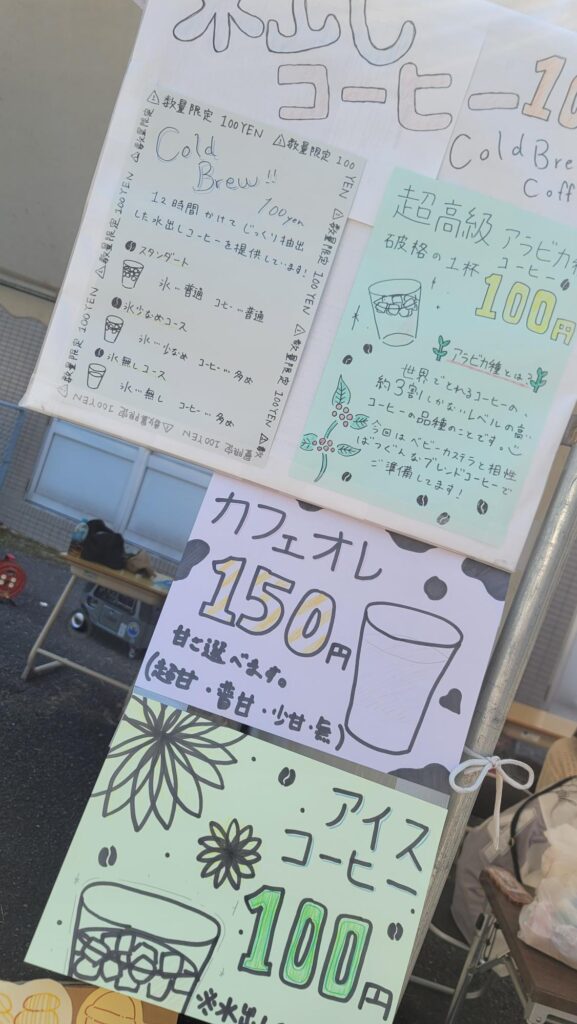 水出し
コーヒー 10
Cold Brew
Coff
⚠数量限定 100YEN ⚠数量限定 100 YEN
Cold
Brew!!
100yen
12時間かけてじっくり抽出
した水出しコーヒーを提供しています!
スタンダート
氷…普通 コーヒー…普通
氷少なめコース
氷…少なめ コーヒー…多め
氷無しコース
氷…無し コーヒー…多め
超高級 アラビカ種
コーヒー
破格の1杯 100円
アラビカ種とは?
世界でとれるコーヒーの、
約3割しかないレベルの高い
コーヒーの品種のことです。
今回はベビーカステラと相性
ばつぐんなブレンドコーヒーで
ご準備してます!
カフェオレ
150円
甘さ選べます。
(超甘・普甘・少甘・無)
アイス
コーヒー
100円
※水出し